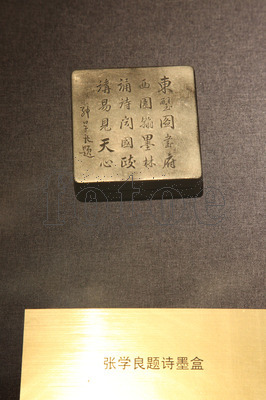 東壁圖書府
西園翰墨林
誦詩聞國政
講易見天心
張學良題
张学良题诗墨盒